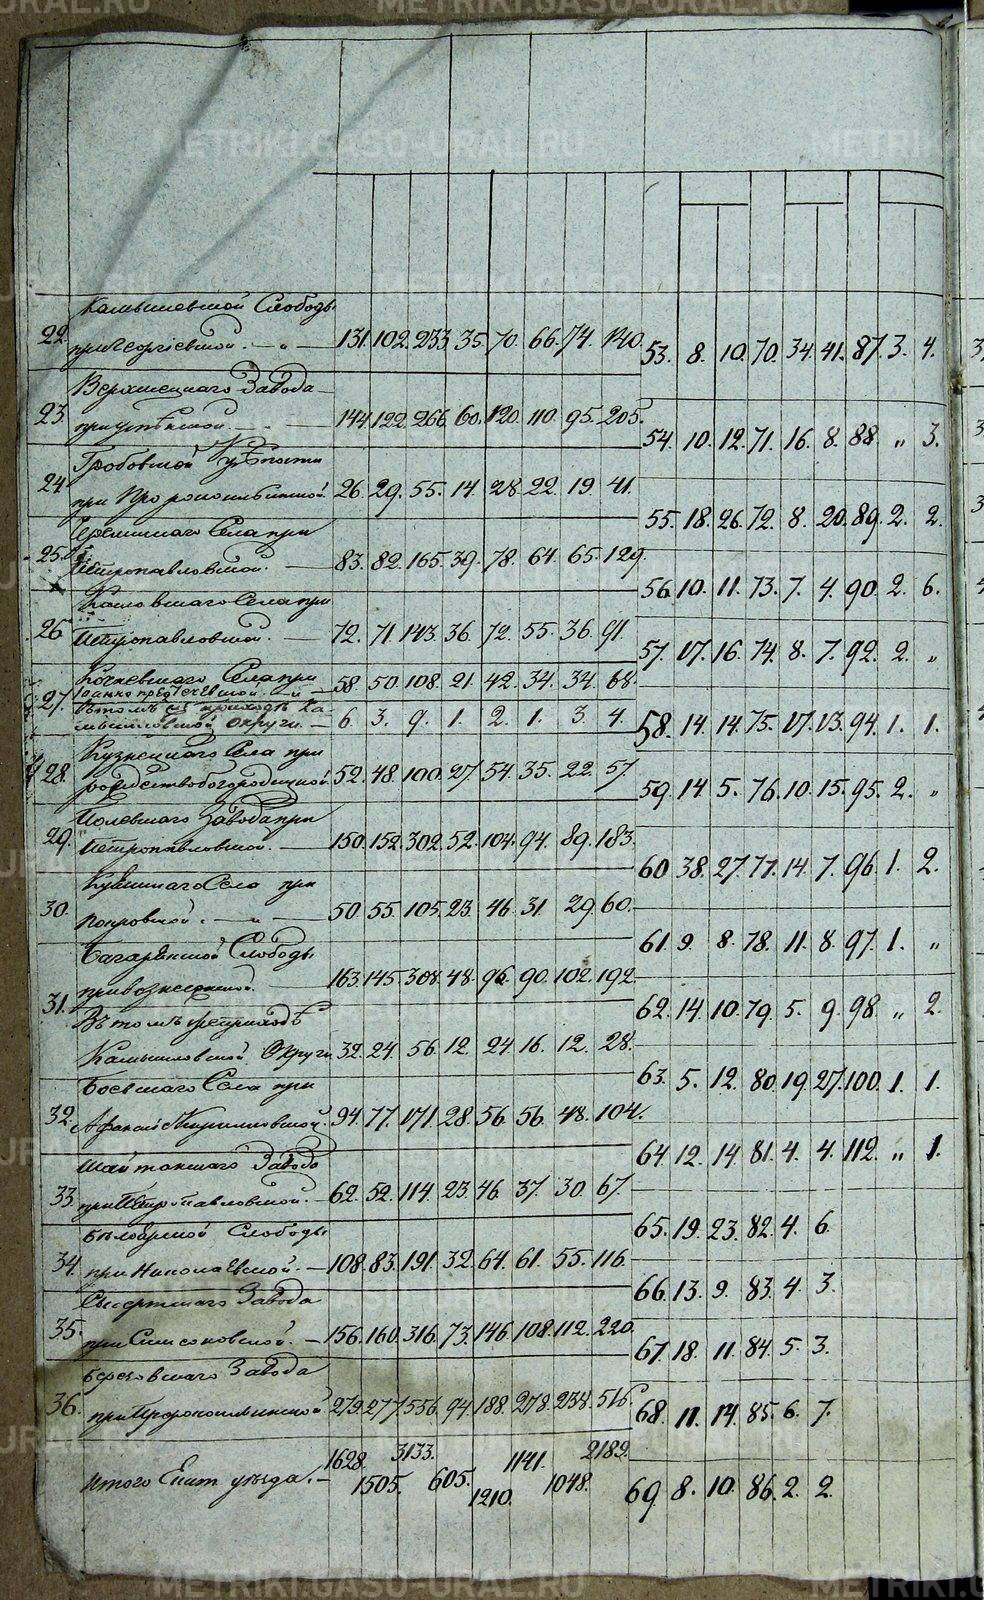 METRIKI.GASO-URAL.RU
Камышевской Слободы
22. при Георгіевской. — „ — 131. 102. 233. 35. 70. 66. 74. 140.
53. 8. 10. 70. 34. 41. 87. 3. 4.
Завода
23. 144. 122. 266. 60. 120. 110. 95. 205.
54. 10. 12. 71. 16. 8. 88. „ 3.
Гробовской Крѣпости
24. при 26. 29. 55. 14. 28. 22. 19. 41.
55. 18. 26. 72. 8. 20. 89. 2. 2.
Села при
25. Петропавловской. — 83. 82. 165. 39. 78. 64. 65. 129.
56. 10. 11. 73. 7. 4. 90. 2. 6.
Села при
26. Петропавловской. — 72. 71. 143. 36. 72. 55. 36. 91.
57. 17. 16. 74. 8. 7. 92. 2. „
Кочневскаго Села при
27. Іоанно предтечевской. — 58. 50. 108. 21. 42. 34. 34. 68.
Въ томъ же приходѣ Ка
мышловской округи. — 6. 3. 9. 1. 2. 1. 3. 4.
58. 14. 14. 75. 17. 13. 94. 1. 1.
Кузнецкаго Села при
28. рождествобогородицкой. 52. 48. 100. 27. 54. 35. 22. 57.
59. 14. 5. 76. 10. 15. 95. 2. „
Полевскаго Завода при
29. Петропавловской. — 150. 152. 302. 52. 104. 94. 89. 183.
60. 38. 27. 77. 14. 7. 96. 1. 2.
Села при
30. покровской. — „ — 50. 55. 105. 23. 46. 31. 29. 60.
61. 9. 8. 78. 11. 8. 97. 1. „
Багаряцкой Слободы
31. при вознесенской. — 163. 145. 308. 48. 96. 90. 102. 192.
62. 14. 10. 79. 5. 9. 98. „ 2.
Въ томъ же приходѣ
Камышловской Округи. 32. 24. 56. 12. 24. 16. 12. 28.
63. 5. 12. 80. 19. 27. 100. 1. 1.
Боевскаго Села при
32. Афанасіо Кириловской. 94. 77. 171. 28. 56. 56. 48. 104.
64. 12. 14. 81. 4. 4. 112. „ 1.
Шайтанскаго Завода
33. при Петропавловской. — 62. 52. 114. 23. 46. 37. 30. 67.
65. 19. 23. 82. 4. 6.
Бѣлоярской Слободы
34. при Николаевской. — 108. 83. 191. 32. 64. 61. 55. 116.
66. 13. 9. 83. 4. 3.
Сысертскаго Завода
35. при Симеоновской. — 156. 160. 316. 73. 146. 108. 112. 220.
67. 18. 11. 84. 5. 3.
Березовскаго Завода
36. при Пророкоильинской 279. 277. 556. 94. 188. 278. 238. 516.
68. 11. 14. 85. 6. 7.
Итого Екат уѣзда. — 1628. 1505. 3133. 605. 1210. 1141. 1048. 2189.
69. 8. 10. 86. 2. 2.
METRIKI.GASO-URAL.RU